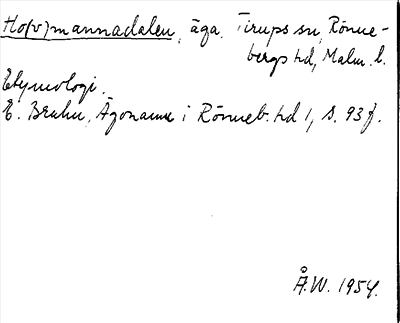 Ho(v)mannadalen, äga. Tirups sn, Rönne-
bergs hd, Malm. l.
Etymologi.
E. Bruhn, Ägonamn i Rönneb. hd 1, s. 93 f.
Å.W. 1954.